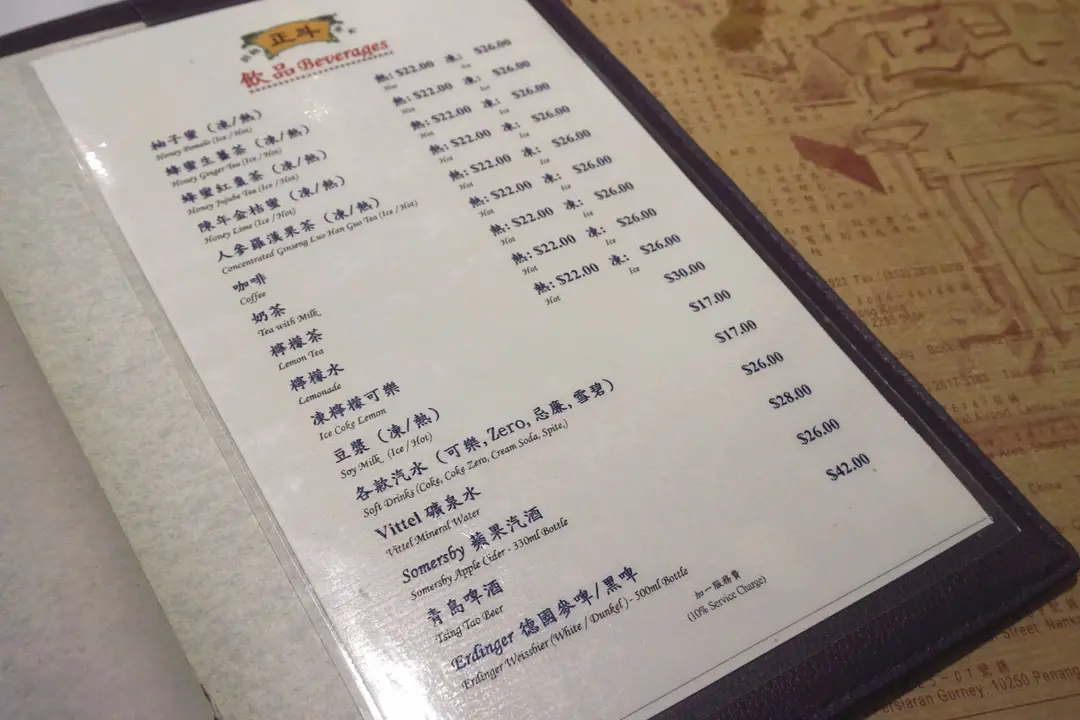 正斗
飲品 Beverages
柚子蜜 (凍/熱) 熱: $22.00 凍: $26.00
Honey Pomelo (Ice / Hot) Hot Ice
蜂蜜生薑茶 (凍/熱) 熱: $22.00 凍: $26.00
Honey Ginger Tea (Ice / Hot) Hot Ice
蜂蜜紅棗茶 (凍/熱) 熱: $22.00 凍: $26.00
Honey Jujube Tea (Ice / Hot) Hot Ice
陳年金桔蜜 (凍/熱) 熱: $22.00 凍: $26.00
Honey Lime (Ice / Hot) Hot Ice
人參羅漢果茶 (凍/熱) 熱: $22.00 凍: $26.00
Concentrated Ginseng Luo Han Guo Tea (Ice / Hot) Hot Ice
咖啡 熱: $22.00 凍: $26.00
Coffee Hot Ice
奶茶 熱: $22.00 凍: $26.00
Tea with Milk Hot Ice
檸檬茶 熱: $22.00 凍: $26.00
Lemon Tea Hot Ice
檸檬水 熱: $22.00 凍: $26.00
Lemonade Hot Ice
凍檸檬可樂 $30.00
Ice Coke Lemon
豆漿 (凍/熱) $17.00
Soy Milk (Ice / Hot)
各款汽水 (可樂, Zero, 忌廉, 雪碧) $17.00
Soft Drinks (Coke, Coke Zero, Cream Soda, Spite,)
Vittel 礦泉水 $26.00
Vittel Mineral Water
Somersby 蘋果汽酒 $28.00
Somersby Apple Cider - 330ml Bottle
青島啤酒 $26.00
Tsing Tao Beer
Erdinger 德國麥啤/黑啤 $42.00
Erdinger Weissbier (White / Dunkel) - 500ml Bottle
加一服務費
(10% Service Charge)
China
Persiaran Gurney, 10250 Penang